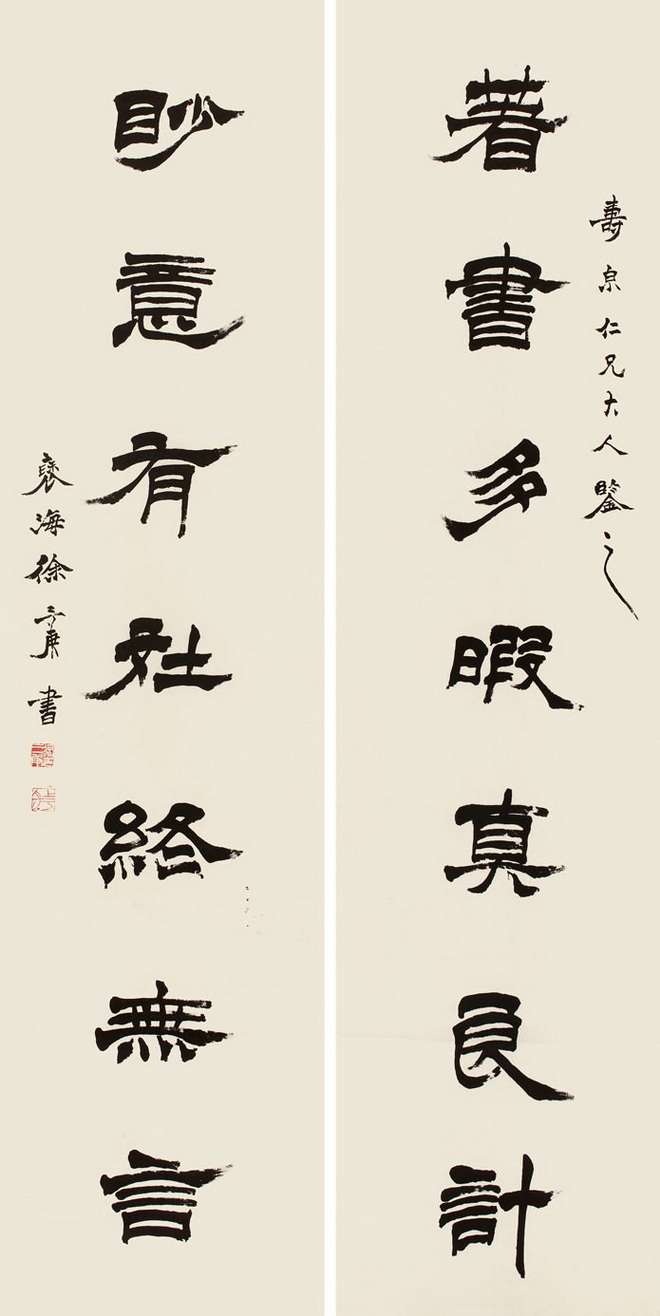 壽泉仁兄大人鑒之
著書多暇真良計
眇意有在終無言
褎海徐三庚書